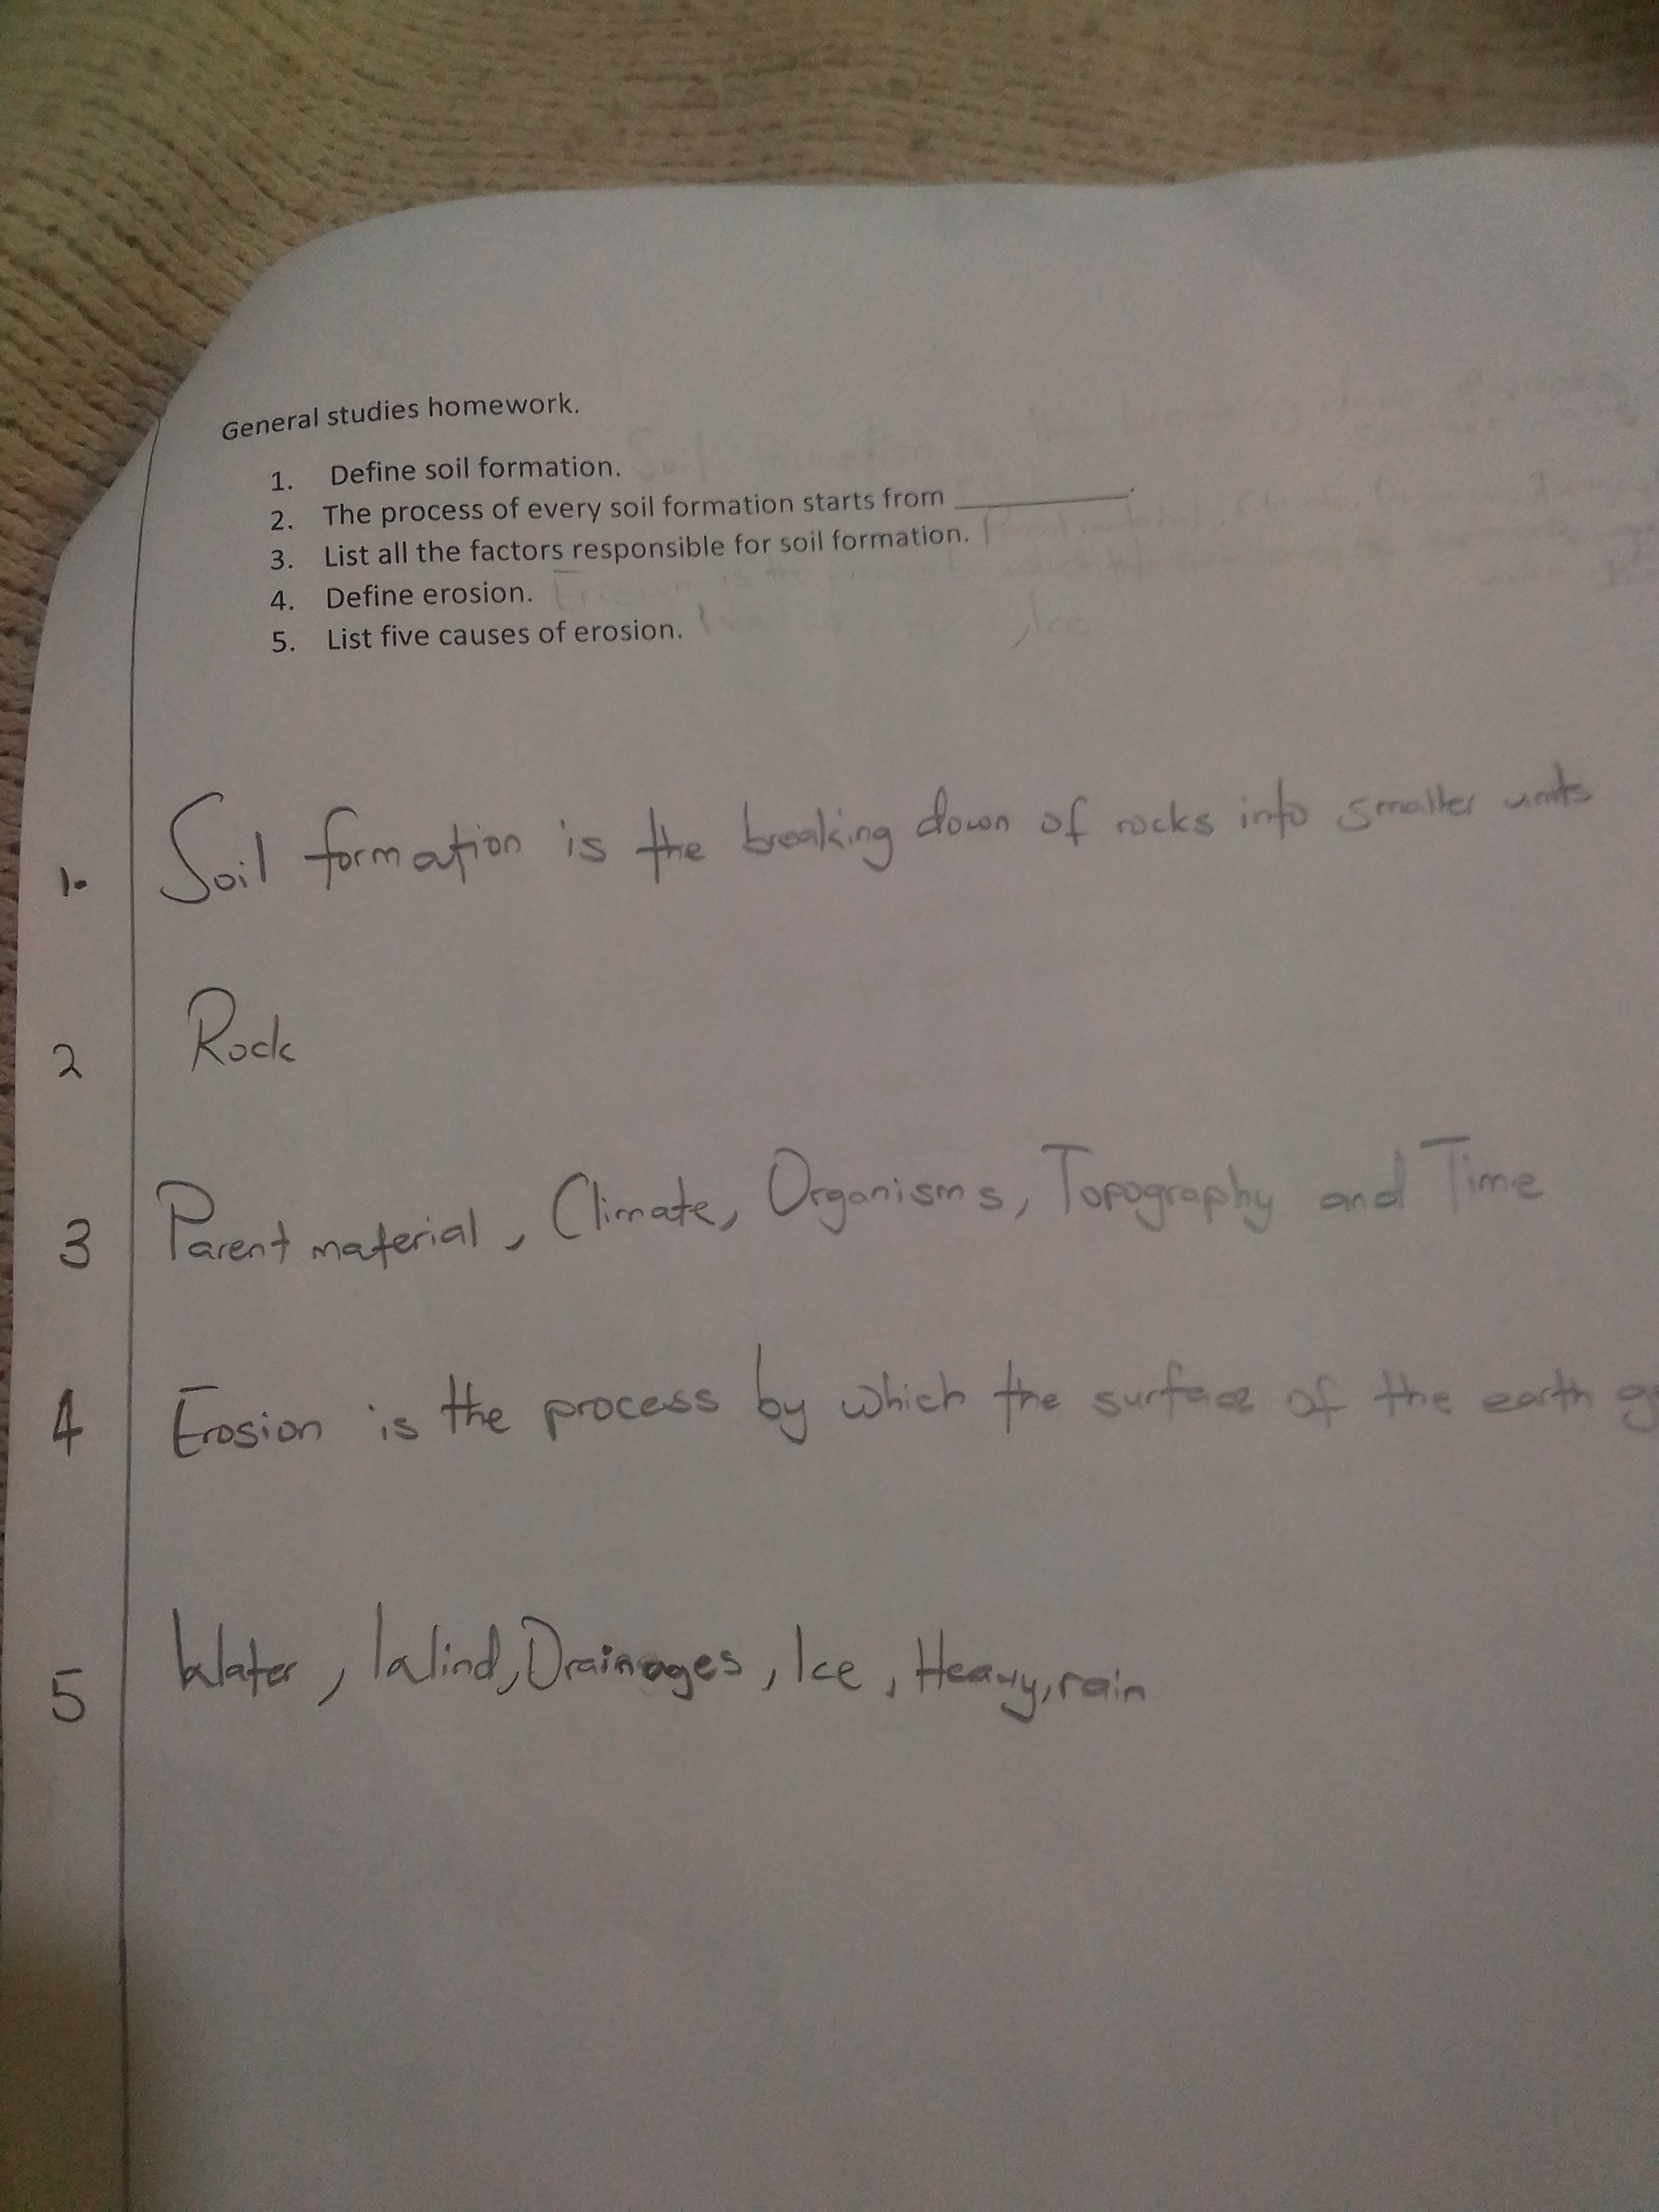 General studies homework.
1. Define soil formation.
2. The process of every soil formation starts from ____________.
3. List all the factors responsible for soil formation.
4. Define erosion.
5. List five causes of erosion.
,Ice
1. Soil formation is the breaking down of rocks into smaller units
2 Rock
3 Parent material, Climate, Organisms, Topography and Time
4 Erosion is the process by which the surface of the earth
5 Water, Wind, Drainages, Ice, Heavy, rain